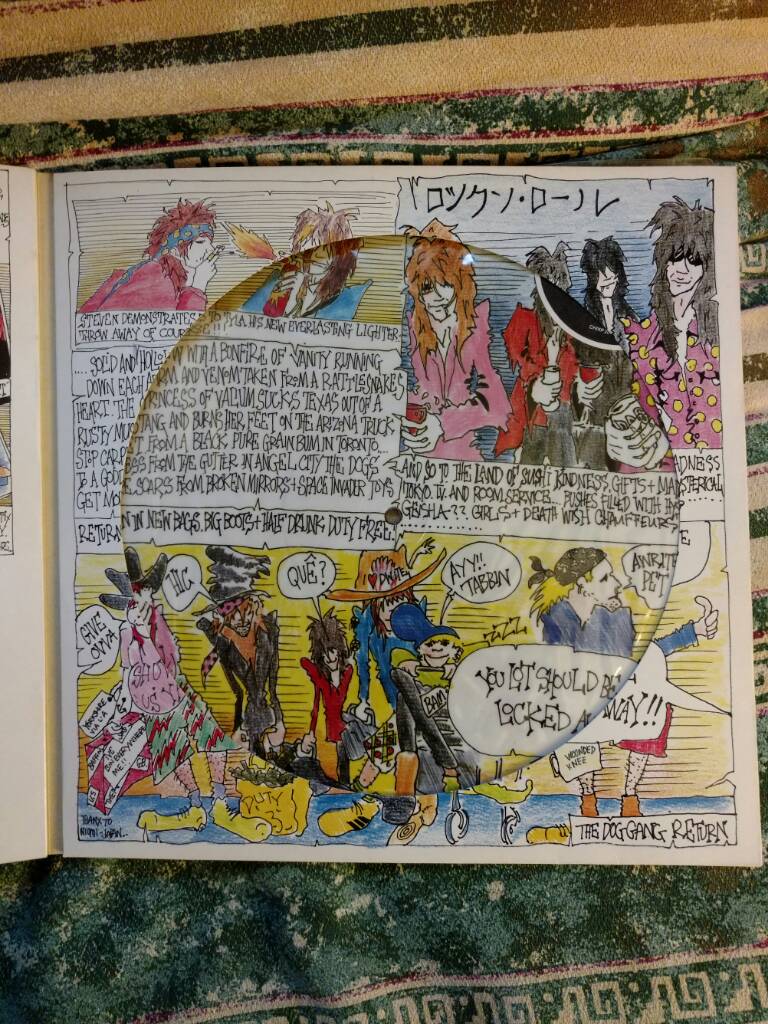 ロックン・ロール
STEVEN DEMONSTRATES TO TYLA HIS NEW EVERLASTING LIGHTER
THROW AWAY OF COURSE!!
.... SOLED AND HOLLOW WITH A BONFIRE OF VANITY RUNNING
DOWN EACH ARM AND VENOM TAKEN FROM A RATTLESNAKES
HEART. THE PRINCESS OF VACUUM SUCKS TEXAS OUT OF A
RUSTY MUSTANG AND BURNS HER FEET ON THE ARIZONA TRUCK
STOP CARP FROM A BLACK PURE GRAIN BUM IN TORONTO...
FROM THE GUTTER IN ANGEL CITY THE DOGS
TO A GOD
GET MO SCARS FROM BROKEN MIRRORS + SPACE INVADER TOYS
AND SO TO THE LAND OF SUSHI KINDNESS, GIFTS + MADNESS
TOKYO. T.V. AND ROOM SERVICE... PUSHES FILLED WITH
GEISHA?? GIRLS + DEATH WISH CHAUFFEURS
RETURN IN NEW BAGS, BIG BOOTS + HALF DRUNK DUTY FREE.
GIVE
OVVA
HIC
QUÊ?
DWITE
AYY!!
TABBIN
AWRITE
PET
ZZZ
YOU LOT SHOULD BE
LOCKED AWAY!!
SHOW
US Y
BAM
DUTY
WOUNDED
KNEE
THANX TO
JAPAN..
THE DOG GANG RETURN